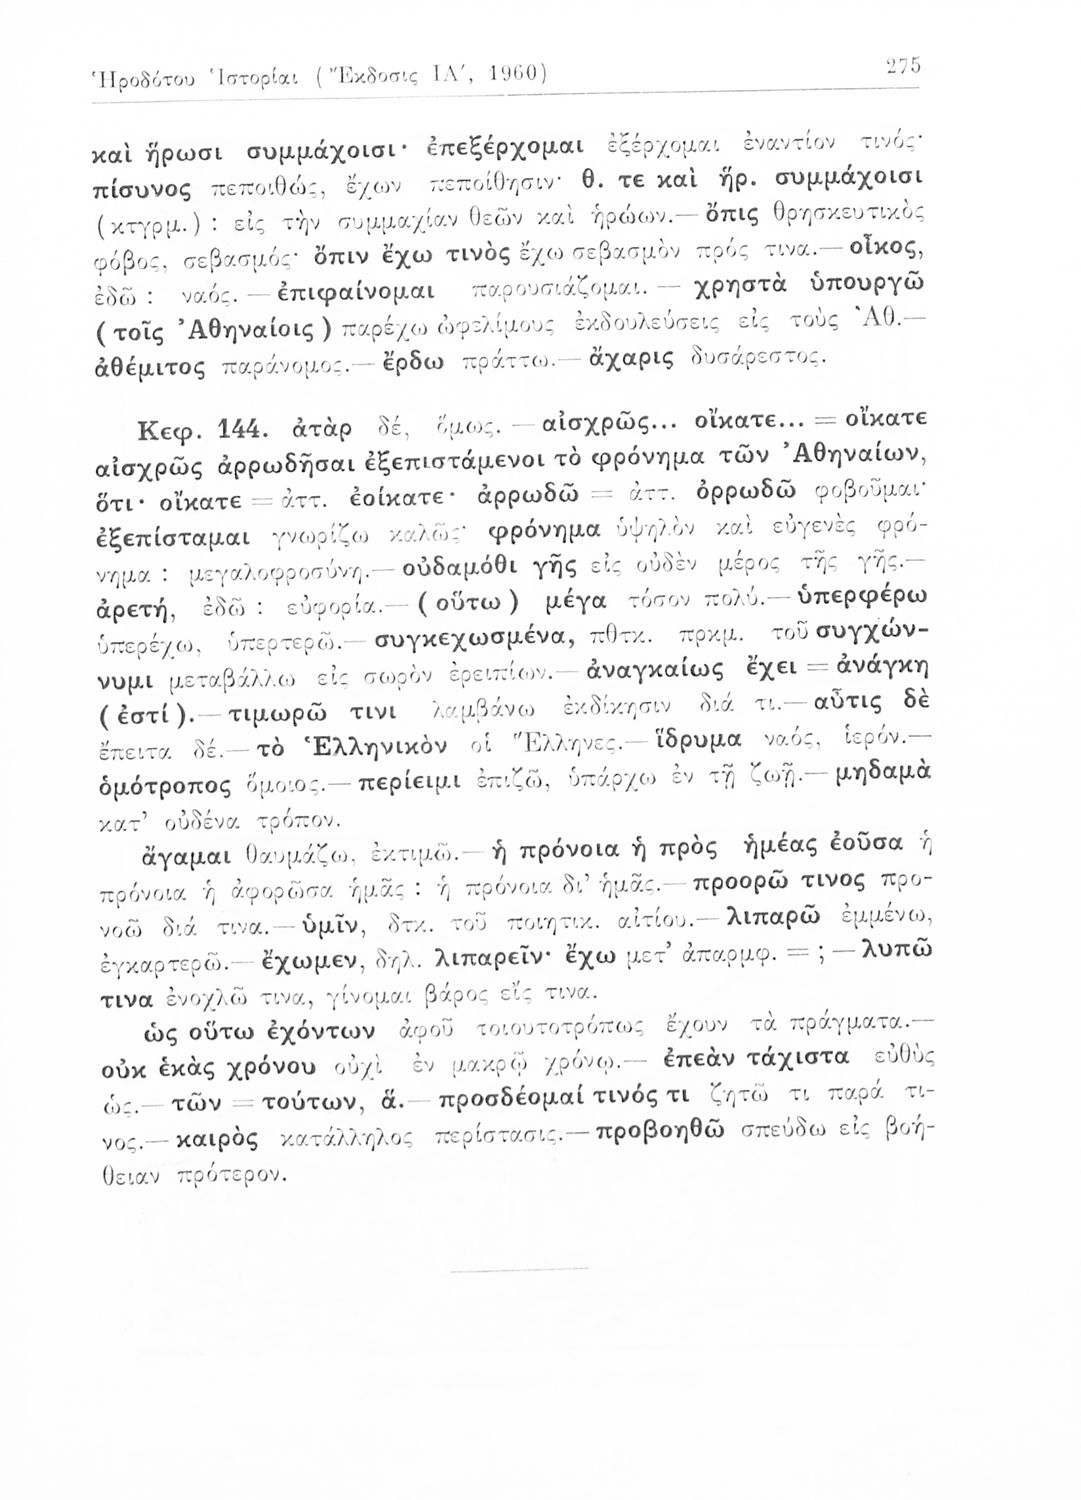 Ἡροδότου Ἱστορίαι ( Ἔκδοσις ΙΑ′, 1960) 275
καὶ ἥρωσι συμμάχοισι· ἐπεξέρχομαι ἐξέρχομαι ἐναντίον τινός·
πίσυνος πεποιθώς, ἔχων πεποίθησιν· θ. τε καὶ ἥρ. συμμάχοισι
( κτγρμ. ) : εἰς τὴν συμμαχίαν θεῶν καὶ ἡρώων.— ὄπις θρησκευτικὸς
φόβος, σεβασμός· ὄπιν ἔχω τινὸς ἔχω σεβασμὸν πρός τινα.— οἶκος,
ἐδῶ : ναός. — ἐπιφαίνομαι παρουσιάζομαι. — χρηστὰ ὑπουργῶ
( τοῖς Ἀθηναίοις ) παρέχω ὠφελίμους ἐκδουλεύσεις εἰς τοὺς Ἀθ.—
ἀθέμιτος παράνομος.— ἔρδω πράττω.— ἄχαρις δυσάρεστος.
Κεφ. 144. ἀτὰρ δέ, ὅμως. — αἰσχρῶς... οἴκατε... = οἴκατε
αἰσχρῶς ἀρρωδῆσαι ἐξεπιστάμενοι τὸ φρόνημα τῶν Ἀθηναίων,
ὅτι· οἴκατε = ἀττ. ἐοίκατε· ἀρρωδῶ = ἀττ. ὀρρωδῶ φοβοῦμαι·
ἐξεπίσταμαι γνωρίζω καλῶς· φρόνημα ὑψηλὸν καὶ εὐγενὲς φρό-
νημα : μεγαλοφροσύνη.— οὐδαμόθι γῆς εἰς οὐδὲν μέρος τῆς γῆς.—
ἀρετή, ἐδῶ : εὐφορία.— ( οὕτω ) μέγα τόσον πολύ.— ὑπερφέρω
ὑπερέχω, ὑπερτερῶ.— συγκεχωσμένα, πθτκ. πρκμ. τοῦ συγχών-
νυμι μεταβάλλω εἰς σωρὸν ἐρειπίων.— ἀναγκαίως ἔχει = ἀνάγκη
( ἐστί ).— τιμωρῶ τινι λαμβάνω ἐκδίκησιν διά τι.— αὖτις δὲ
ἔπειτα δέ.— τὸ Ἑλληνικὸν οἱ Ἕλληνες.— ἵδρυμα ναός, ἱερόν.—
ὁμότροπος ὅμοιος.— περίειμι ἐπιζῶ, ὑπάρχω ἐν τῇ ζωῇ.— μηδαμὰ
κατ’ οὐδένα τρόπον.
ἄγαμαι θαυμάζω, ἐκτιμῶ.— ἡ πρόνοια ἡ πρὸς ἡμέας ἐοῦσα ἡ
πρόνοια ἡ ἀφορῶσα ἡμᾶς : ἡ πρόνοια δι’ ἡμᾶς.— προορῶ τινος προ-
νοῶ διά τινα.— ὑμῖν, δτκ. τοῦ ποιητικ. αἰτίου.— λιπαρῶ ἐμμένω,
ἐγκαρτερῶ.— ἔχωμεν, δηλ. λιπαρεῖν· ἔχω μετ’ ἀπαρμφ. = ; — λυπῶ
τινα ἐνοχλῶ τινα, γίνομαι βάρος εἴς τινα.
ὡς οὕτω ἐχόντων ἀφοῦ τοιουτοτρόπως ἔχουν τὰ πράγματα.—
οὐκ ἑκὰς χρόνου οὐχὶ ἐν μακρῷ χρόνῳ.— ἐπεὰν τάχιστα εὐθὺς
ὡς.— τῶν = τούτων, ἅ.— προσδέομαί τινός τι ζητῶ τι παρά τι-
νος.— καιρὸς κατάλληλος περίστασις.— προβοηθῶ σπεύδω εἰς βοή-
θειαν πρότερον.